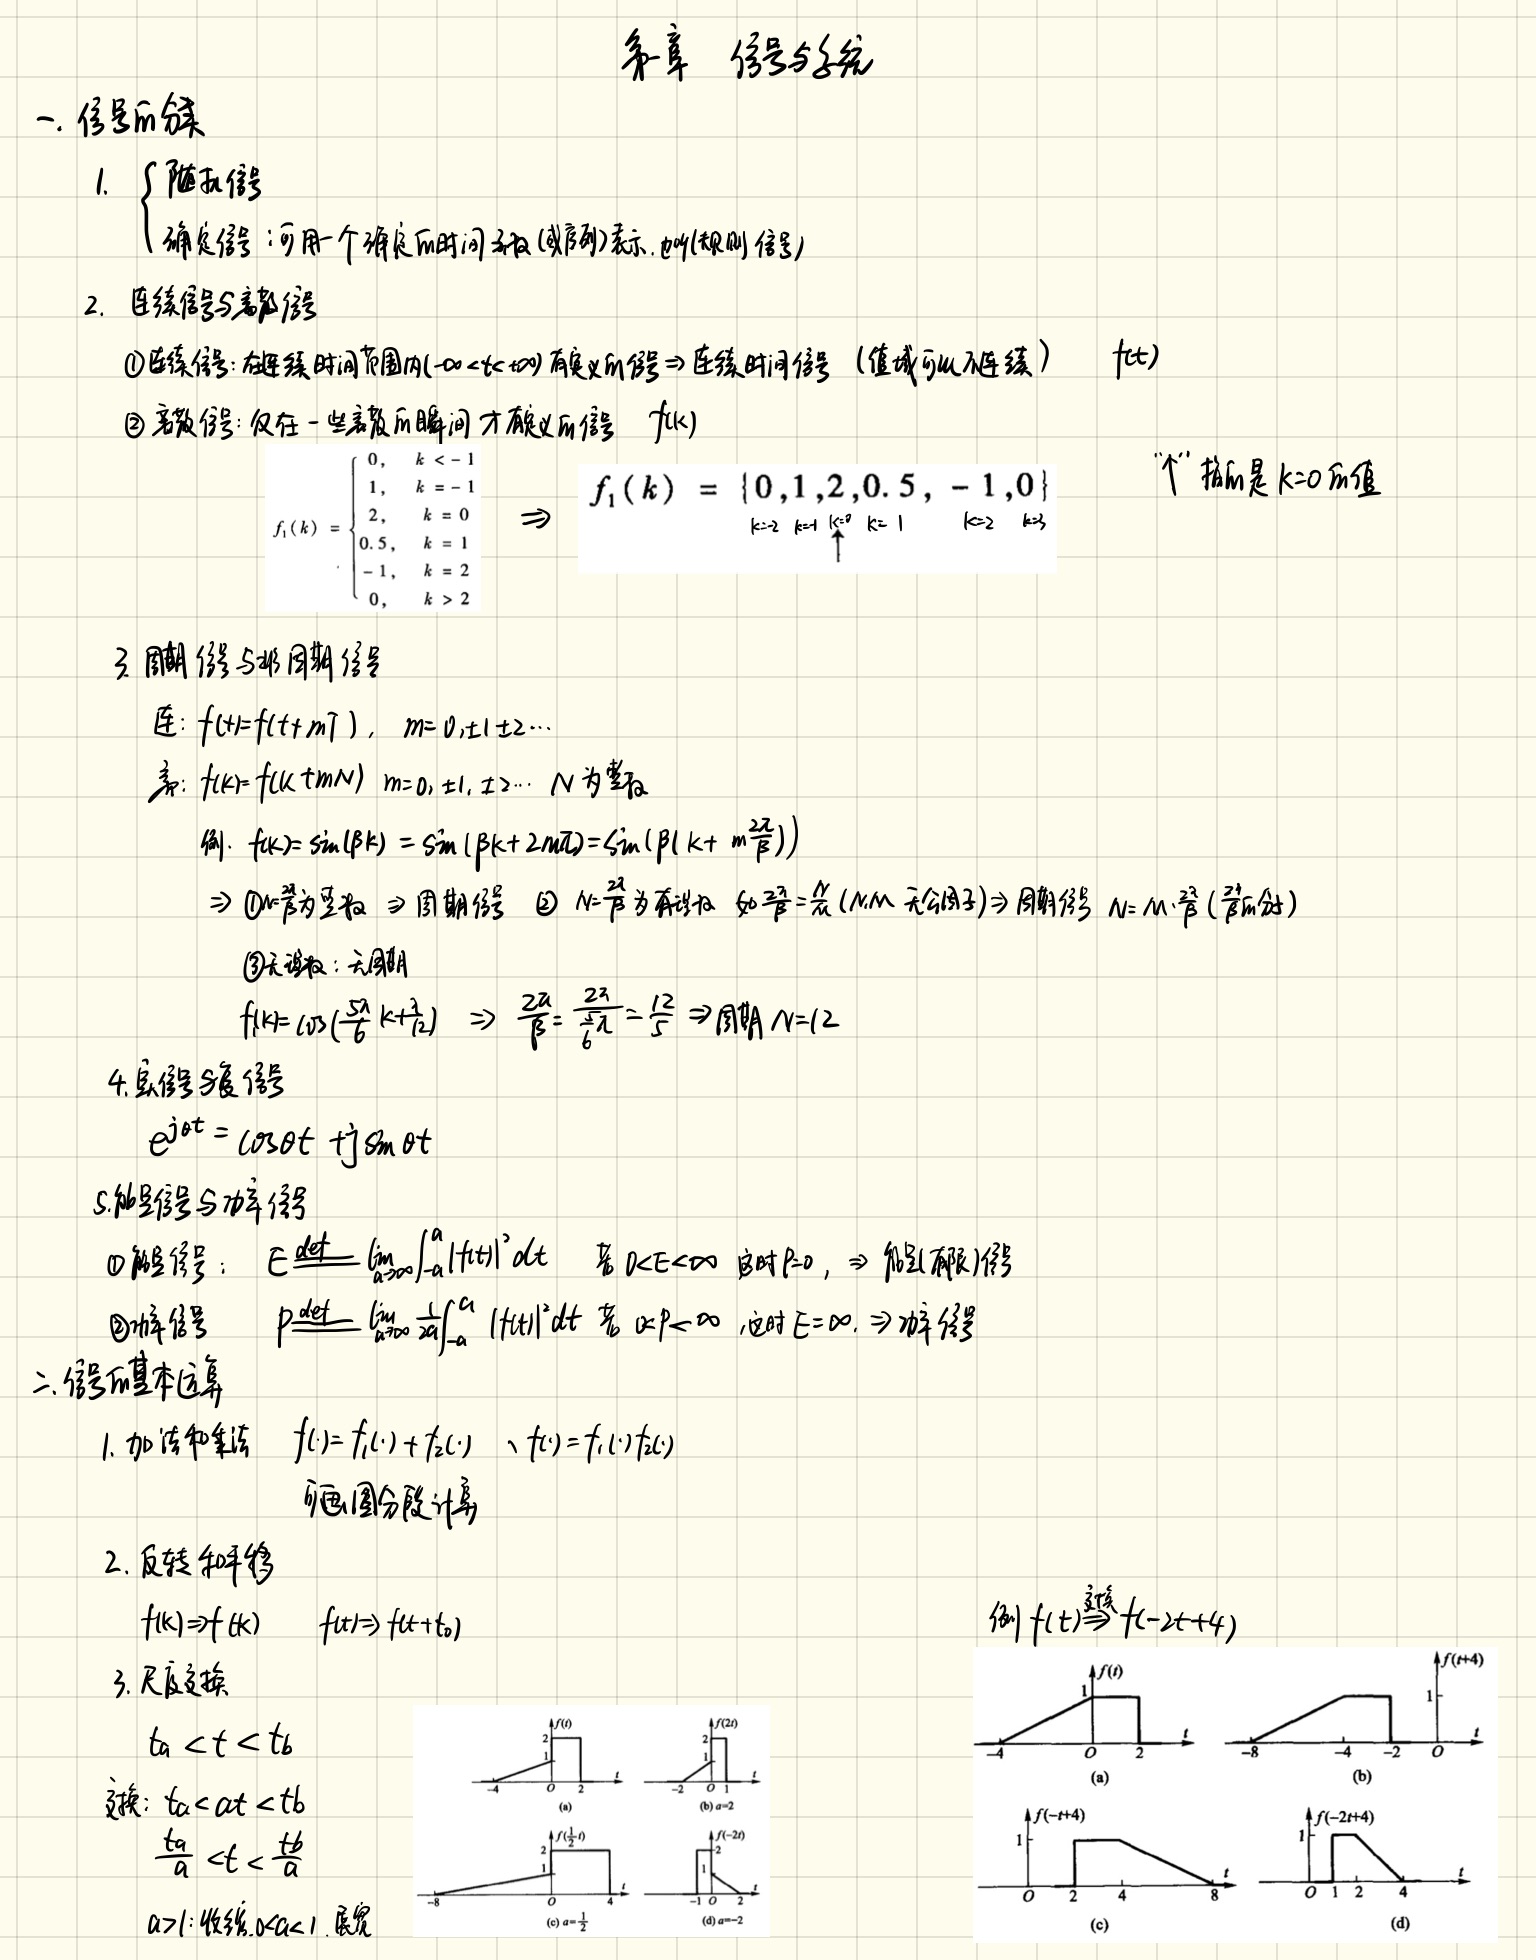 第一章 信号与系统
一. 信号的分类
1. { 随机信号
确定信号:可用一个确定的时间函数(或序列)表示.也叫(规则信号)
2. 连续信号与离散信号
①连续信号:在连续时间范围内(-∞<t<+∞)有定义的信号⇒连续时间信号 (值域可以不连续) f(t)
② 离散信号:仅在一些离散的瞬间才有定义的信号 f(k)
"↑" 指的是 k=0 的值
f₁(k) = { 0, k < -1
1, k = -1
2, k = 0
0.5, k = 1
-1, k = 2
0, k > 2
⇒ f₁(k) = {0,1,2,0.5,-1,0}
k=-2 k=-1 k=0 k=1 k=2 k=3
↑
3. 周期信号与非周期信号
连: f(t)=f(t+mT), m=0,±1 ±2…
离: f(k)=f(k+mN) m=0,±1,±2… N为整数
例. f(k)=sin(βk)=sin(βk+2mπ)=sin(β(k+m\frac{2π}{β}))
⇒ ①N=\frac{2π}{β}为整数 ⇒ 周期信号 ② N=\frac{2π}{β}为有理数 如\frac{2π}{β}=\frac{N}{M}(N.M 无公因子)⇒周期信号 N=M·\frac{2π}{β}(\frac{2π}{β}的分子)
③无理数:无周期
f₁(k)=cos(\frac{5π}{6}k+\frac{π}{12}) ⇒ \frac{2π}{β}=\frac{2π}{\frac{5}{6}π}=\frac{12}{5} ⇒周期 N=12
4. 实信号与复信号
e^{jθt}=cosθt+jsinθt
5. 能量信号与功率信号
①能量信号: E \overset{def}{=} \lim_{a→∞}∫_{-a}^{a}|f(t)|²dt 若 0<E<∞ 这时P=0, ⇒ 能量(有限)信号
②功率信号 P \overset{def}{=} \lim_{a→∞}\frac{1}{2a}∫_{-a}^{a}|f(t)|²dt 若 0<P<∞,这时E=∞,⇒功率信号
二. 信号的基本运算
1. 加法和乘法 f(·)=f₁(·)+f₂(·) 、f(·)=f₁(·)f₂(·)
可画图分段计算
2. 反转和平移
f(k)⇒f(-k) f(t)⇒f(t+t₀)
例 f(t) \overset{变换}{⇒} f(-2t+4)
3. 尺度变换
ta<t<tb
变换: ta<at<tb
\frac{ta}{a}<t<\frac{tb}{a}
a>1:收缩.0<a<1.展宽
f(t) 2 1 -4 O 2 t (a)
f(2t) 2 1 -2 O 1 t (b) a=2
f(\frac{1}{2}t) 2 1 -8 O 4 t (c) a=\frac{1}{2}
f(-2t) 2 1 -1 O 2 t (d) a=-2
f(t) 1 -4 O 2 t (a)
f(t+4) 1 -8 -4 -2 O t (b)
f(-t+4) 1 O 2 4 8 t (c)
f(-2t+4) 1 O 1 2 4 t (d)